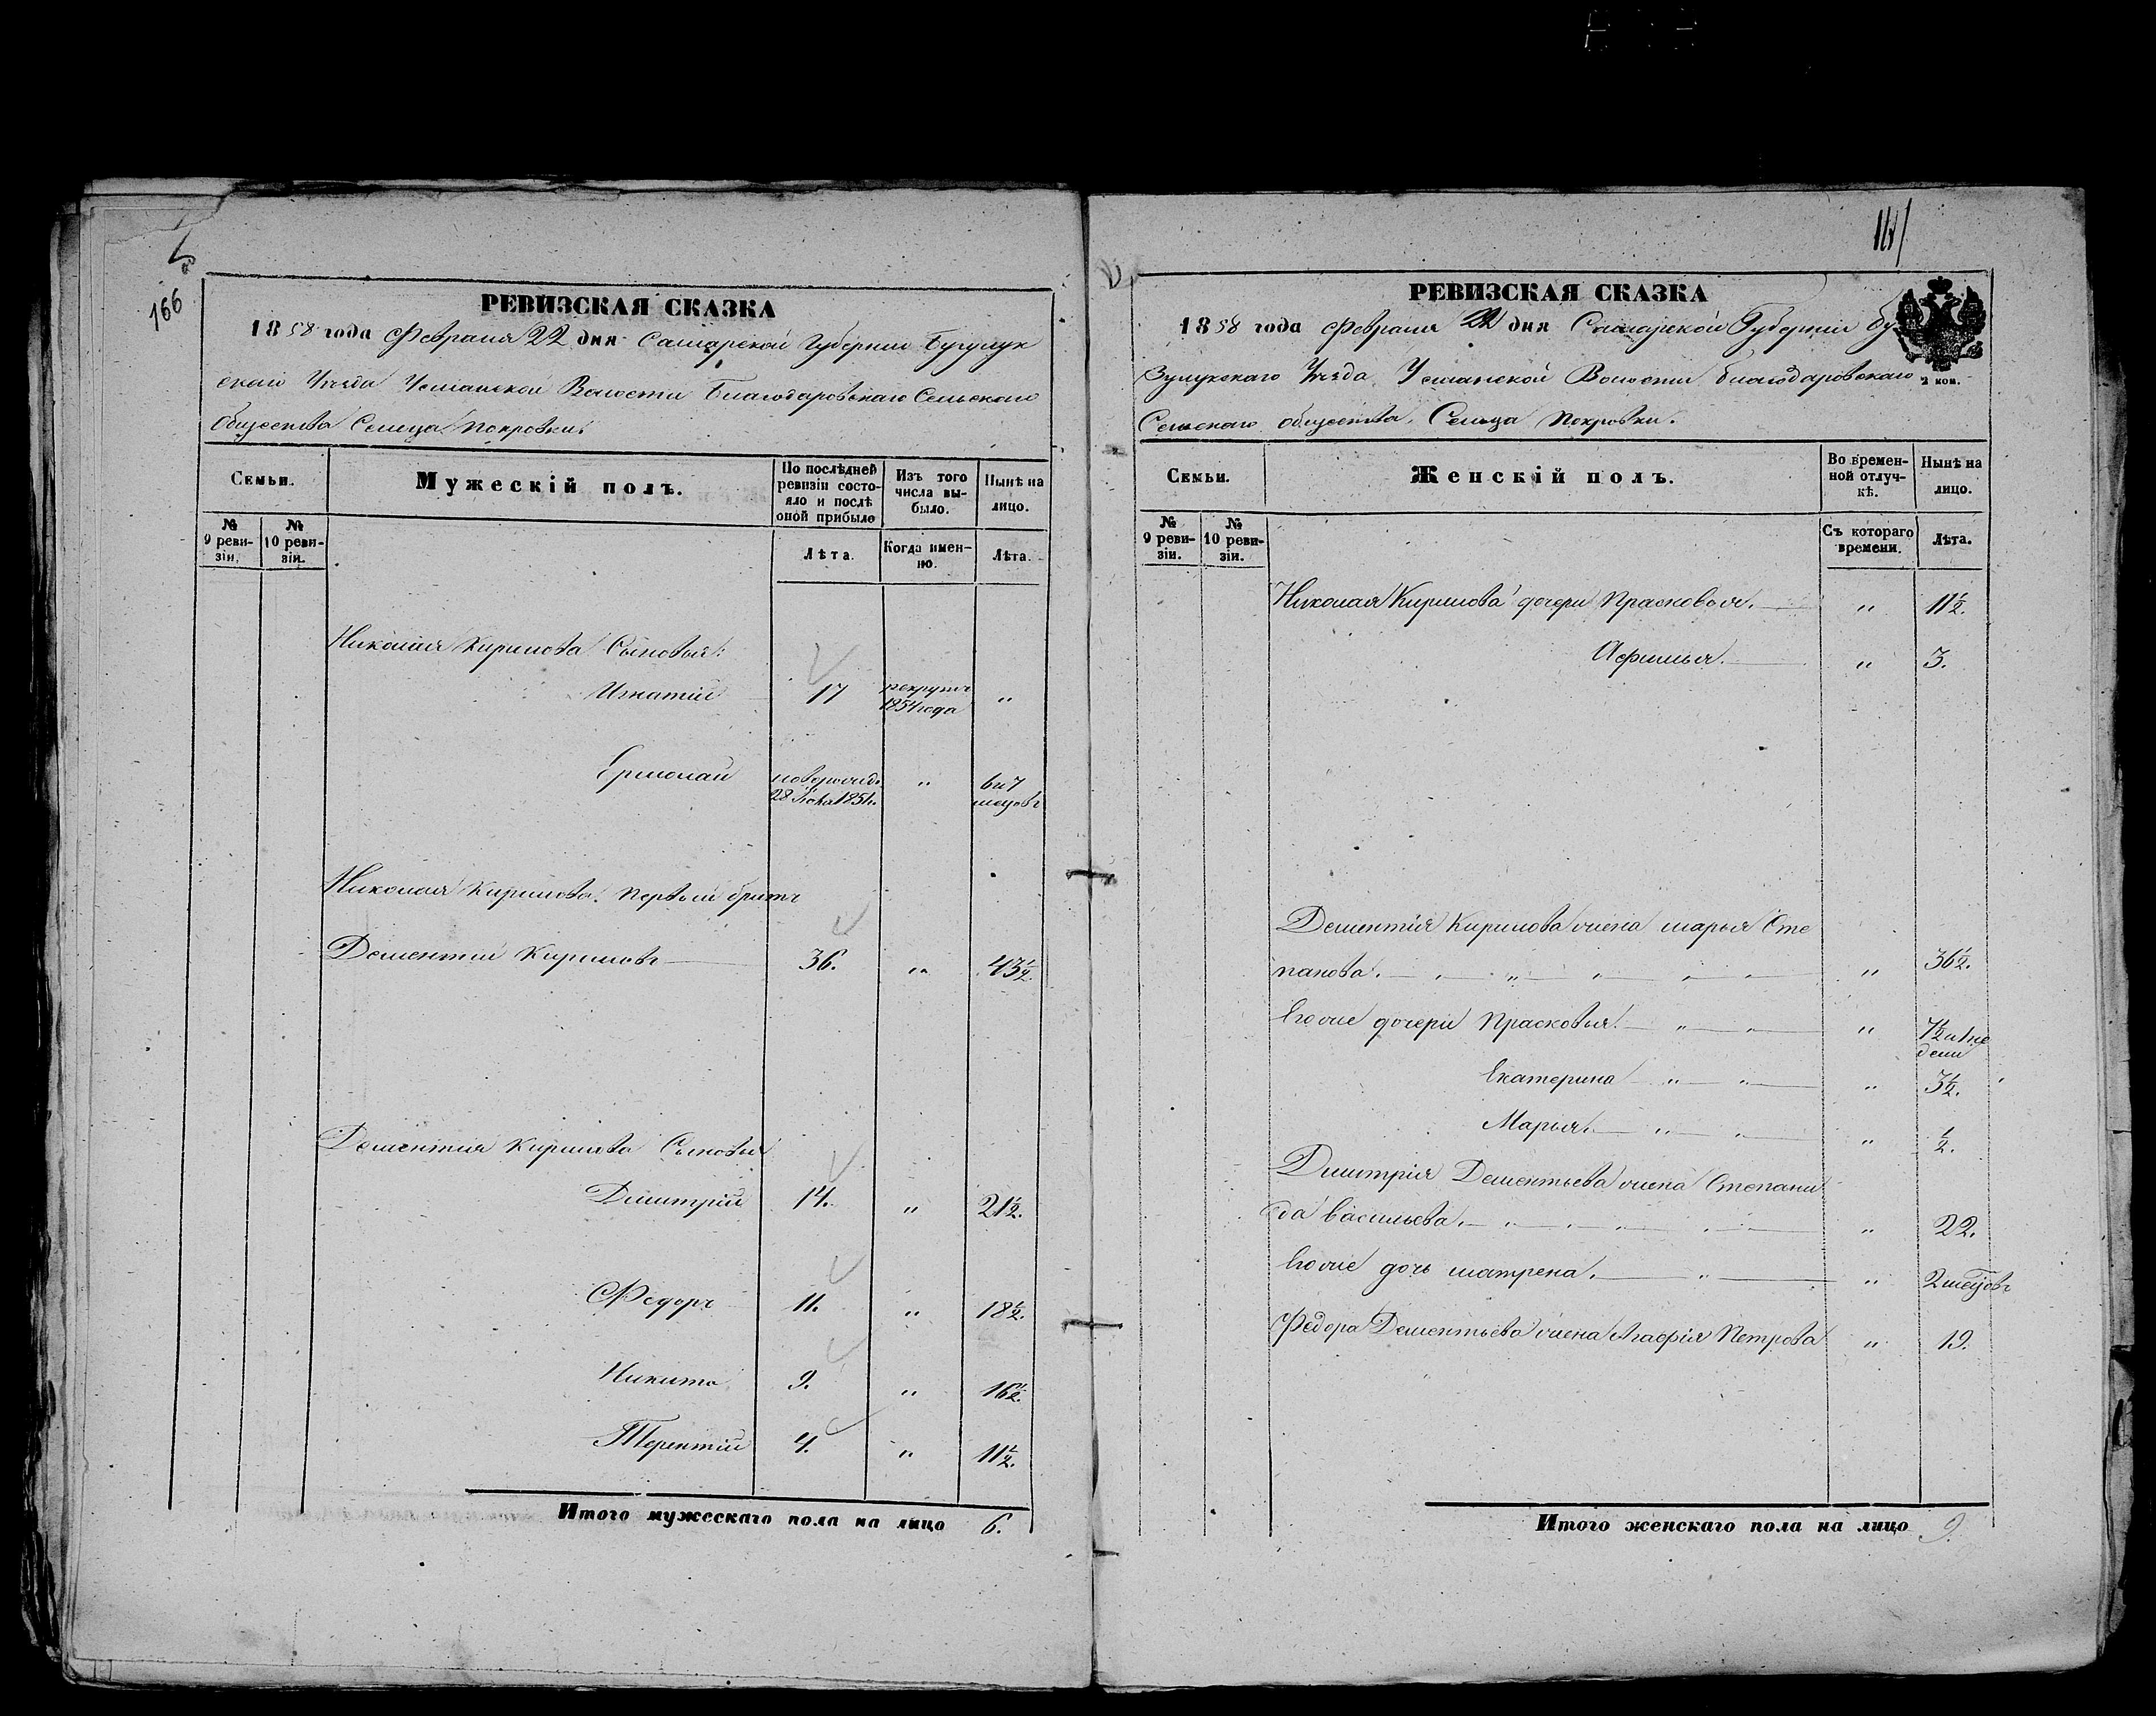 166
РЕВИЗСКАЯ СКАЗКА
1858 года Февраля 22 дня Самарской Губернии Бузулук
скаго Уѣзда Усманской Волости Благодаровскаго Сельскаго
Общества Сельца Покровки.
Семьи.
Мужескій полъ.
По послѣдней ревизіи состояло и послѣ оной прибыло
Изъ того числа выбыло.
Нынѣ на лицо.
№ 9 ревизіи.
№ 10 ревизіи.
Лѣта.
Когда именно.
Лѣта.
Николая Кирилова Сыновья:
Игнатий 17 рекрутъ 1854 года "
Ермолай новорожд. 28 1851. " 6 и 7 месцовъ
Николая Кирилова первый братъ
Дементий Кириловъ 36. " 43½.
Дементия Кирилова Сыновья
Димитрий 14. " 21½.
Федоръ 11. " 18½.
Никита 9. " 16½.
Терентий 4. " 11½.
Итого мужескаго пола на лицо 6.
РЕВИЗСКАЯ СКАЗКА
1858 года Февраля 22 дня Самарской Губернии Бу
зулукскаго Уѣзда Усманской Волости Благодаровскаго
2 коп.
Сельскаго общества, Сельца Покровки.
Семьи.
Женскій полъ.
Во временной отлучкѣ.
Нынѣ на лицо.
№ 9 ревизіи.
№ 10 ревизіи.
Съ котораго времени.
Лѣта.
Николая Кирилова дочери Прасковья. " 11½.
Афимья. " 3.
Дементия Кирилова жена марья Сте
панова. " 36½.
Егоже дочери Прасковья. " 7½ и 1 не дели
Екатерина " 3½.
Марья. " ½.
Димитрия Дементьева жена Степани
да васильева. " 22.
Егоже дочь матрена. " 2 месцовъ
Федора Дементьева жена Агафия Петрова " 19.
Итого женскаго пола на лицо 9.